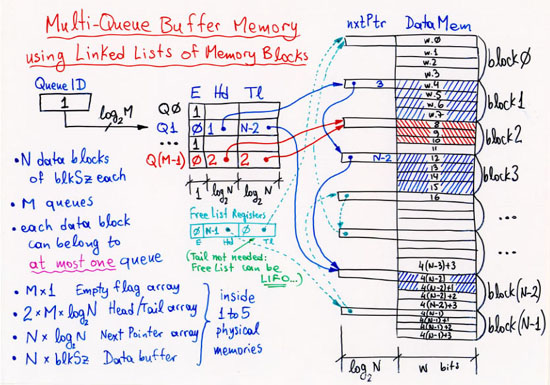 Multi-Queue Buffer Memory
using Linked Lists of Memory Blocks
Queue ID
1
log₂M
E Hd Tl
QØ 1
Q1 Ø 1 N-2
... 1
Q(M-1) Ø 2 2
1 log₂N log₂N
Free List Registers
Ø N-1 Ø
E Hd Tl
(Tail not needed:
Free List can be
LIFO...)
• N data blocks
of blkSz each
• M queues
• each data block
can belong to
at most one queue
• M×1 Empty flag array
• 2×M×log₂N Head/Tail array
• N×log₂N Next Pointer array
• N×blkSz Data buffer
inside
1 to 5
physical
memories
nxtPtr DataMem
w.0
w.1
w.2
w.3
blockØ
3
w.4
w.5
w.6
w.7
block1
8
9
10
11
block2
N-2
12
13
14
15
block3
16
...
...
4(N-3)+3
4(N-2)
4(N-2)+1
4(N-2)+2
4(N-2)+3
block(N-2)
4(N-1)
4(N-1)+1
4(N-1)+2
4(N-1)+3
block(N-1)
log₂N w bits